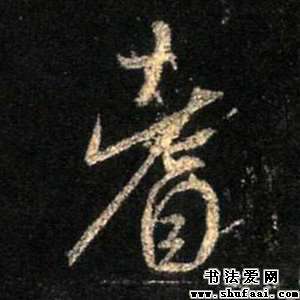 耆
书法爱网
www.shufaai.com